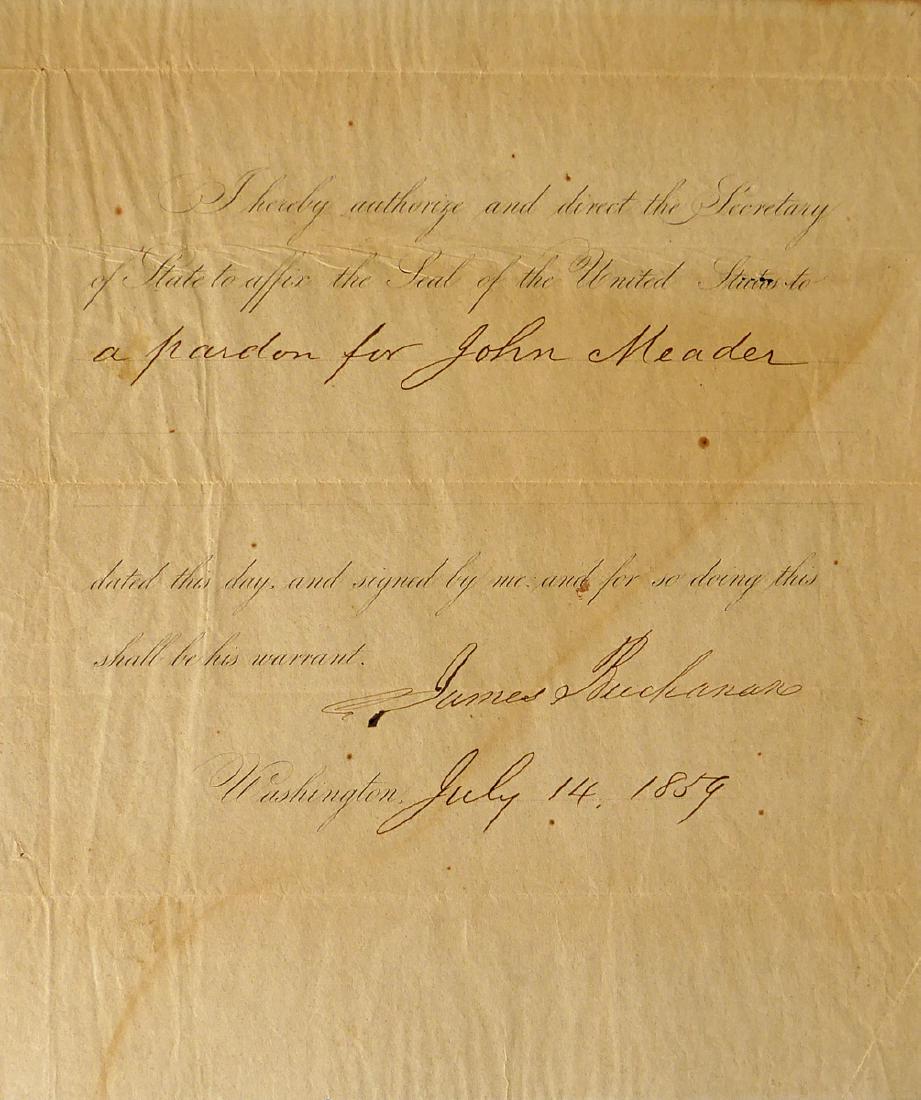 I hereby authorize and direct the Secretary
of State to affix the Seal of the United States to
a pardon for John Meader
dated this day, and signed by me: and for so doing this
shall be his warrant.
James Buchanan
Washington, July 14, 1859